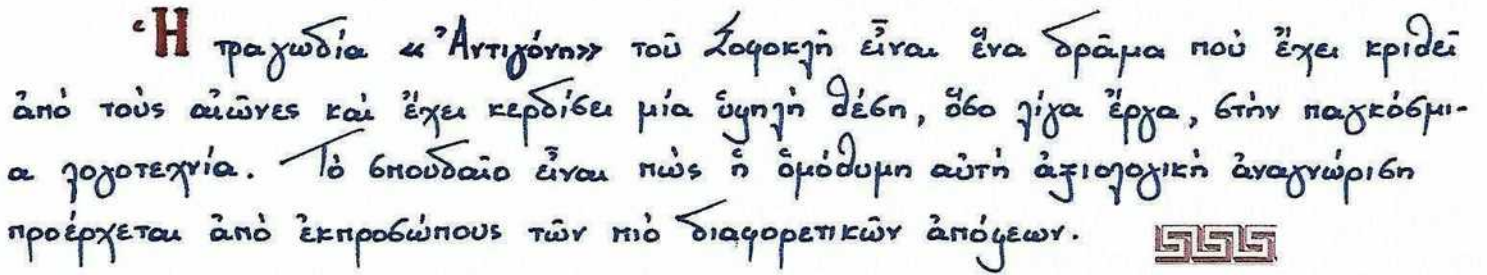 Ἡ τραγωδία «Ἀντιγόνη» τοῦ Σοφοκλῆ εἶναι ἕνα δρᾶμα ποὺ ἔχει κριθεῖ
ἀπὸ τοὺς αἰῶνες καὶ ἔχει κερδίσει μία ὑψηλὴ θέση, ὅσο λίγα ἔργα, στὴν παγκόσμι-
α λογοτεχνία. Τὸ σπουδαῖο εἶναι πὼς ἡ ὁμόθυμη αὐτὴ ἀξιολογικὴ ἀναγνώριση
προέρχεται ἀπὸ ἐκπροσώπους τῶν πιὸ διαφορετικῶν ἀπόψεων.